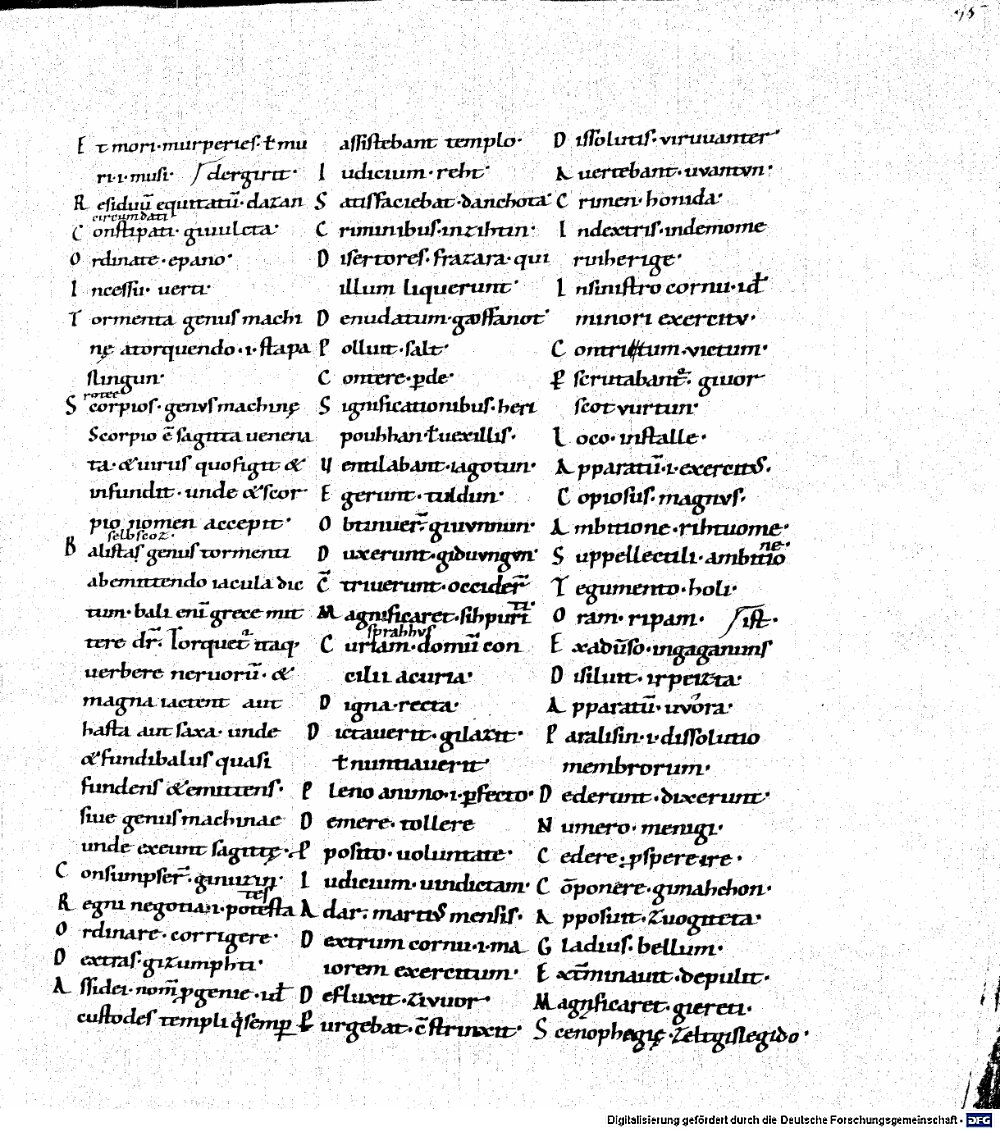 95
E t mori·murperies·ł mu
ri·i·musi· dergirit·
R esiduū equitatū·dazan
circumdati
C onstipati·giuuleta·
O rdinare·epano·
I ncessu·uerti·
T ormenta genus machi
nę atorquendo·i·stapa
slingun·
C orpios·genus machinę
Scorpio ē sagitta uenena
ta·&uirus quo figit &
infundit·unde &scor
pio nomen accepit·
selbscoz·
B alistas genus tormenti
abemittendo iacula dic
tum·bali enī grece mit
tere dr̄· Torquet᷑ itaq·
uerbere neruorū·&
magna iactent aut
hasta aut saxa·unde
&fundibalus quasi
fundens &emittens·
siue genus machinae
unde exeunt sagittę·
C onsumpser̄·ginuzun·
tes
R egni negotian·potesta
O rdinare·corrigere·
D extras·gizumphti·
A ssidei·nom̄ ꝓgenie·id
custodes templi q̇semp̱
assistebant templo·
I udicium·reht·
S atisfaciebat·danchota·
C riminibus·inzihtin·
D isertores·frazara·qui
illum liquerunt·
D enudatum·gaoffanot·
P olluit·salt·
C ontere·p̱de·
S ignificationibus·heri
pouhhan·ł uexillis·
U entilabant·iagotun·
E gerunt·tuldun·
O btinuer̄·giuunnun·
D uxerunt·giduungun·
C̄ triuerunt·occider̄
ti·
M agnificaret·sihpuri
sprahhus
C uriam·domū con
cilii acuria·
D igna·recta·
D ictauerit·gilazit·
ł nuntiauerit·
P leno animo·i·p̱fecto·
D emere·tollere
P posito·uoluntate·
I udicium·uindictam·
A dar·martius mensis·
D extrum cornu·i·ma
iorem exercitum·
D efluxit·zivuor·
P urgebat·c̄strinxit·
D issolutis·viruuanter·
A uertebant·uvantvn·
C rimen·honida·
I ndextris·indemome
rinherige·
I nsinistro cornu·id
minori exercitv·
C ontritum·victum·
P scrutabant᷑·giuor
scot vurtun·
L oco·installe·
A pparatū·i·exercitus·
C opiosus·magnvs·
A mbitione·rihtuome·
ne·
S uppellectili·ambitio
T egumento·holi·
O ram·ripam· ist·
E xadūso·ingaganins
D isiluit·irpeizta·
A pparatū·uvora·
P aralisin·i·dissolutio
membrorum·
D ederunt·dixerunt·
N umero·menigi·
C edere·ꝓspereire·
C ōponere·gimahchon·
A pposuit·zuogiteta·
G ladius·bellum·
E xt̄minauit·depulit·
M agnificaret·giereti·
S cenophegię·zeltgislegido·
Digitalisierung gefördert durch die Deutsche Forschungsgemeinschaft - DFG